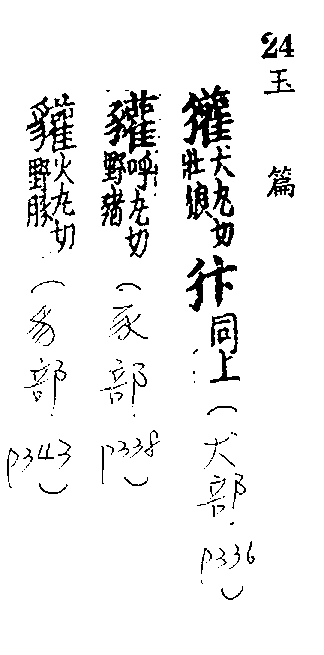 24
玉篇
獾火丸切牡貆犿同上(犬部p336)
貛呼丸切野猪(豕部p338)
貛火丸切野豚(豸部p343)